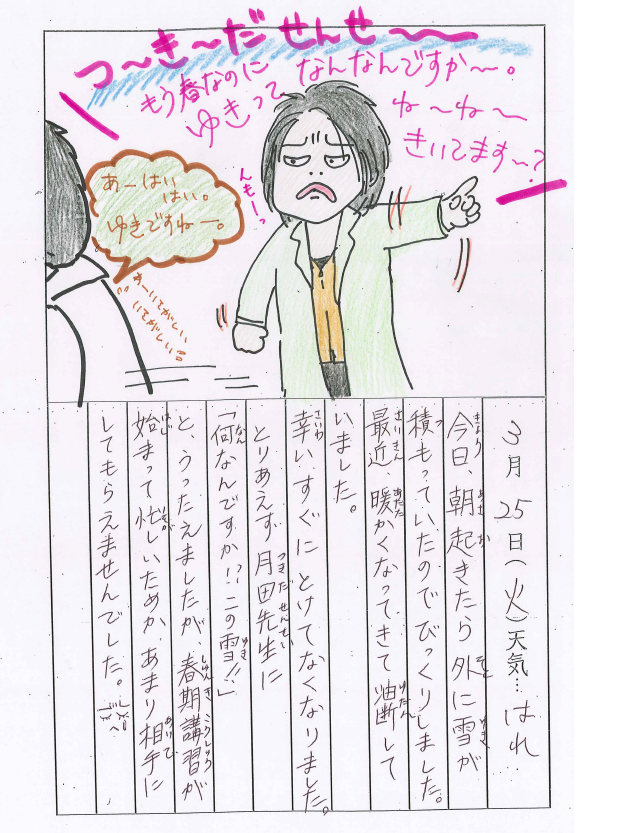 つ〜き〜だ せんせ〜〜
もう春なのに
ゆきって なんなんですか〜。
ね〜ね〜
きいてます〜?
んもーっ
あーはい
はい。
ゆきですねー。
あーいそがしい
いそがしい
3月25日(火)天気…はれ
今日、朝起きたら 外に雪が
積もっていたのでびっくりしました。
最近 暖かくなってきて 油断して
いました。
幸い、すぐに とけてなくなりました。
とりあえず 月田先生に
「何なんですか!?この雪!!」
と、うったえましたが、春期講習が
始まって 忙しいためか、あまり相手に
してもらえませんでした。